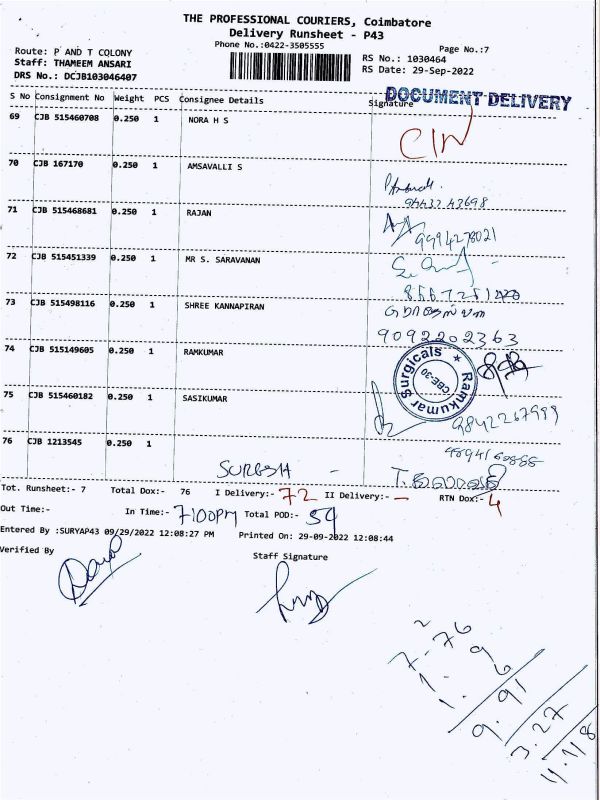 THE PROFESSIONAL COURIERS, Coimbatore
Delivery Runsheet - P43
Phone No.:0422-3505555
Page No.:7
Route: P AND T COLONY
Staff: THAMEEM ANSARI
DRS No.: DCJB103046407
RS No.: 1030464
RS Date: 29-Sep-2022
DOCUMENT DELIVERY
S No Consignment No Weight PCS Consignee Details Signature
69 CJB 515460708 0.250 1 NORA H S
70 CJB 167170 0.250 1 AMSAVALLI S
71 CJB 515468681 0.250 1 RAJAN
9994278021
72 CJB 515451339 0.250 1 MR S. SARAVANAN
73 CJB 515498116 0.250 1 SHREE KANNAPIRAN
9092202363
74 CJB 515149605 0.250 1 RAMKUMAR
Ramkumar Surgicals
CBE-30
75 CJB 515460182 0.250 1 SASIKUMAR
76 CJB 1213545 0.250 1
SURESH -
Tot. Runsheet:- 7 Total Dox:- 76 I Delivery:- 72 II Delivery:- - RTN Dox:- 4
Out Time:- In Time:- 7100pm Total POD:- 59
Entered By :SURYAP43 09/29/2022 12:08:27 PM Printed On: 29-09-2022 12:08:44
Verified By
Staff Signature